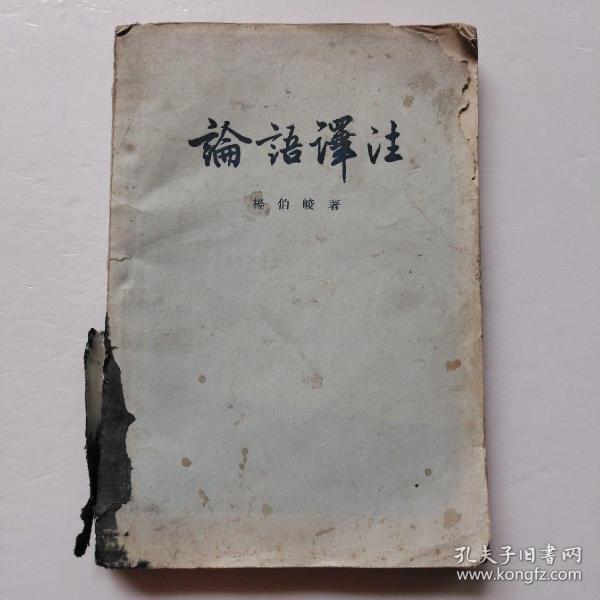 論語譯注
楊伯峻著
孔夫子旧书网
www.kongfz.com